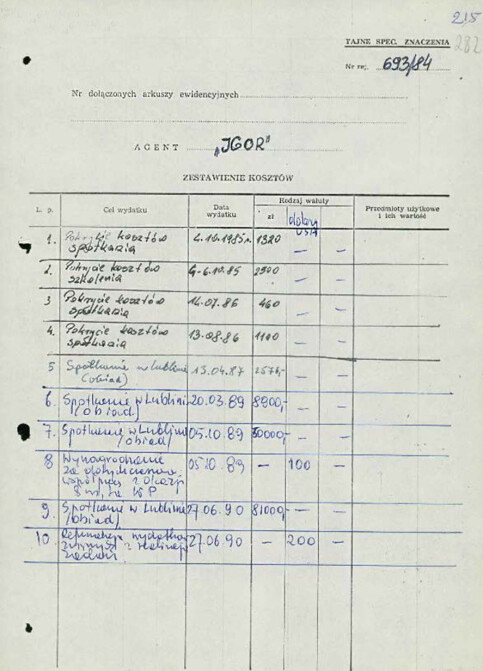 215
282
TAJNE SPEC. ZNACZENIA
Nr rej. 693/84
Nr dołączonych arkuszy ewidencyjnych
AGENT „IGOR"
ZESTAWIENIE KOSZTÓW
L. p. Cel wydatku Data wydatku Rodzaj waluty Przedmioty użytkowe i ich wartość
zł dolary USA
1. Pokrycie kosztów spotkania 2.10.1985r. 1320 —
2. Pokrycie kosztów szkolenia 4-6.10.85 2500 — —
3 Pokrycie kosztów spotkania 14.07.86 460 — —
4. Pokrycie kosztów spotkania 13.08.86 1100 — —
5 Spotkanie w Lublinie (obiad) 13.04.87 2576,- — —
6. Spotkanie w Lublinie (obiad) 20.03.89 8900,- — —
7. Spotkanie w Lublinie (obiad) 05.10.89 — —
8 Wynagrodzenie za dotychczasową współpracę z 05.10.89 — 100 —
9. Spotkanie w Lublinie (obiad) 27.06.90 81000,- — —
10 z 27.06.90 — 200 —